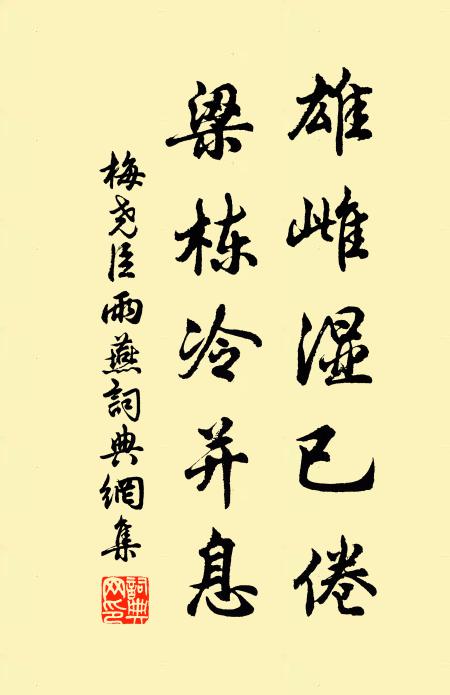 雄雌湿已倦
梁栋冷并息
梅尧臣雨燕詞典網集
詞典